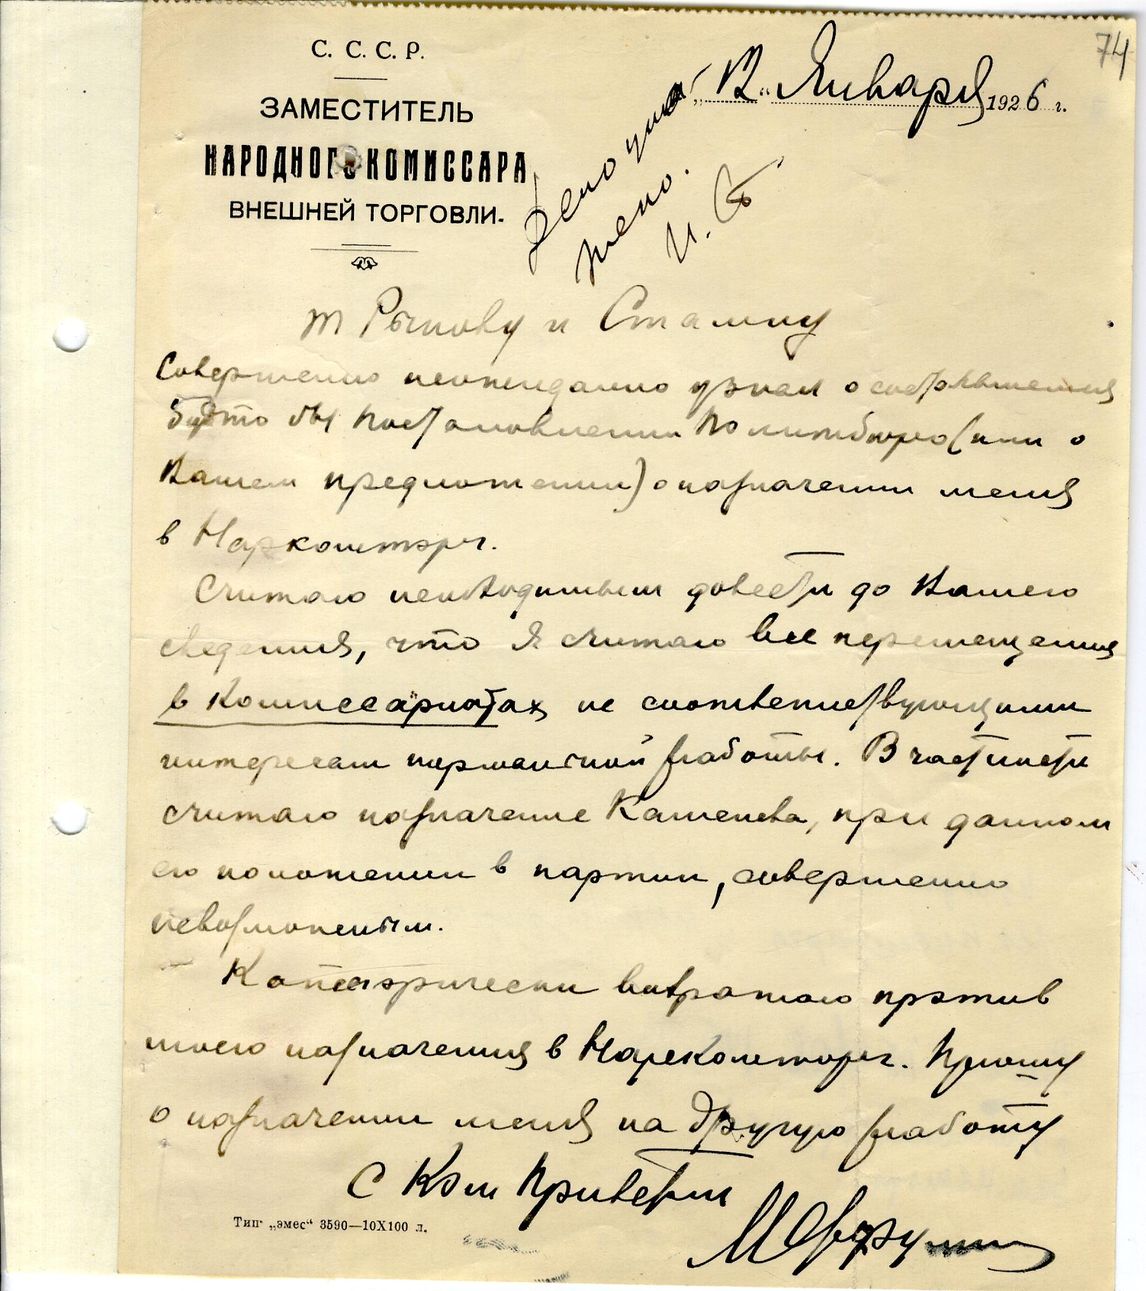 74
С. С. С. Р.
ЗАМЕСТИТЕЛЬ
НАРОДНОГО КОМИССАРА
ВНЕШНЕЙ ТОРГОВЛИ.
„12“ Января 1926 г.
Дело ула
жено.
И. Ст
т Рыкову и Сталину
Совершенно неожиданно узнал о состоявшемся
будто бы постановлении Политбюро (или о
Вашем предложении) о назначении меня
в Наркомторг.
Считаю необходимым довести до Вашего
сведения, что я считаю все перемещения
в Комиссариатах не соответствующими
интересам нормальной работы. В частности
считаю назначение Каменева, при данном
его положении в партии, совершенно
невозможным.
Категорически возражаю против
моего назначения в Наркомторг. Прошу
о назначении меня на другую работу
С Ком приветом
М Фрумкин
Тип. „эмес“ 3590—10X100 л.